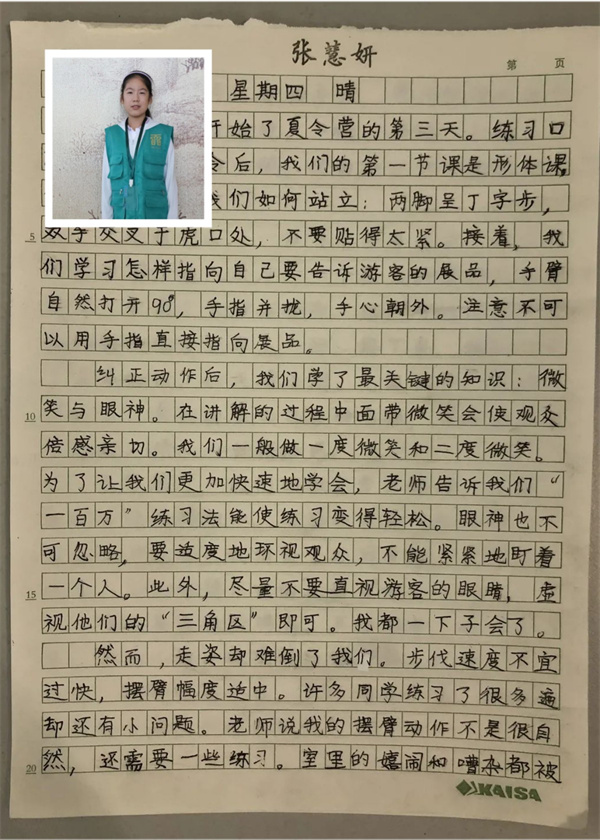 张慧妍
第 页
星期四 晴
开始了夏令营的第三天。练习口
令后，我们的第一节课是形体课
我们如何站立：两脚呈丁字步，
5
双手交叉于虎口处，不要贴得太紧。接着，我
们学习怎样指向自己要告诉游客的展品，手臂
自然打开90°，手指并拢，手心朝外。注意不可
以用手指直接指向展品。
纠正动作后，我们学了最关键的知识：微
10
笑与眼神。在讲解的过程中面带微笑会使观众
倍感亲切。我们一般做一度微笑和二度微笑。
为了让我们更加快速地学会，老师告诉我们“
一百万”练习法能使练习变得轻松。眼神也不
可忽略，要适度地环视观众，不能紧紧地盯着
15
一个人。此外，尽量不要直视游客的眼睛，虚
视他们的“三角区”即可。我都一下子会了。
然而，走姿却难倒了我们。步伐速度不宜
过快，摆臂幅度适中。许多同学练习了很多遍
却还有小问题。老师说我的摆臂动作不是很自
20
然，还需要一些练习。室里的嬉闹和嘈杂都被
KAISA